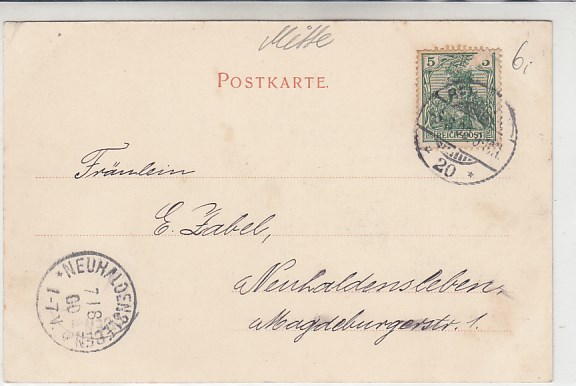 Mitte
6i
POSTKARTE.
5 5
REICHSPOST
20 *
Fräulein
E. Zabel,
Neuhaldensleben,
Magdeburgerstr. 1.
* NEUHALDENSLEBEN
1-7